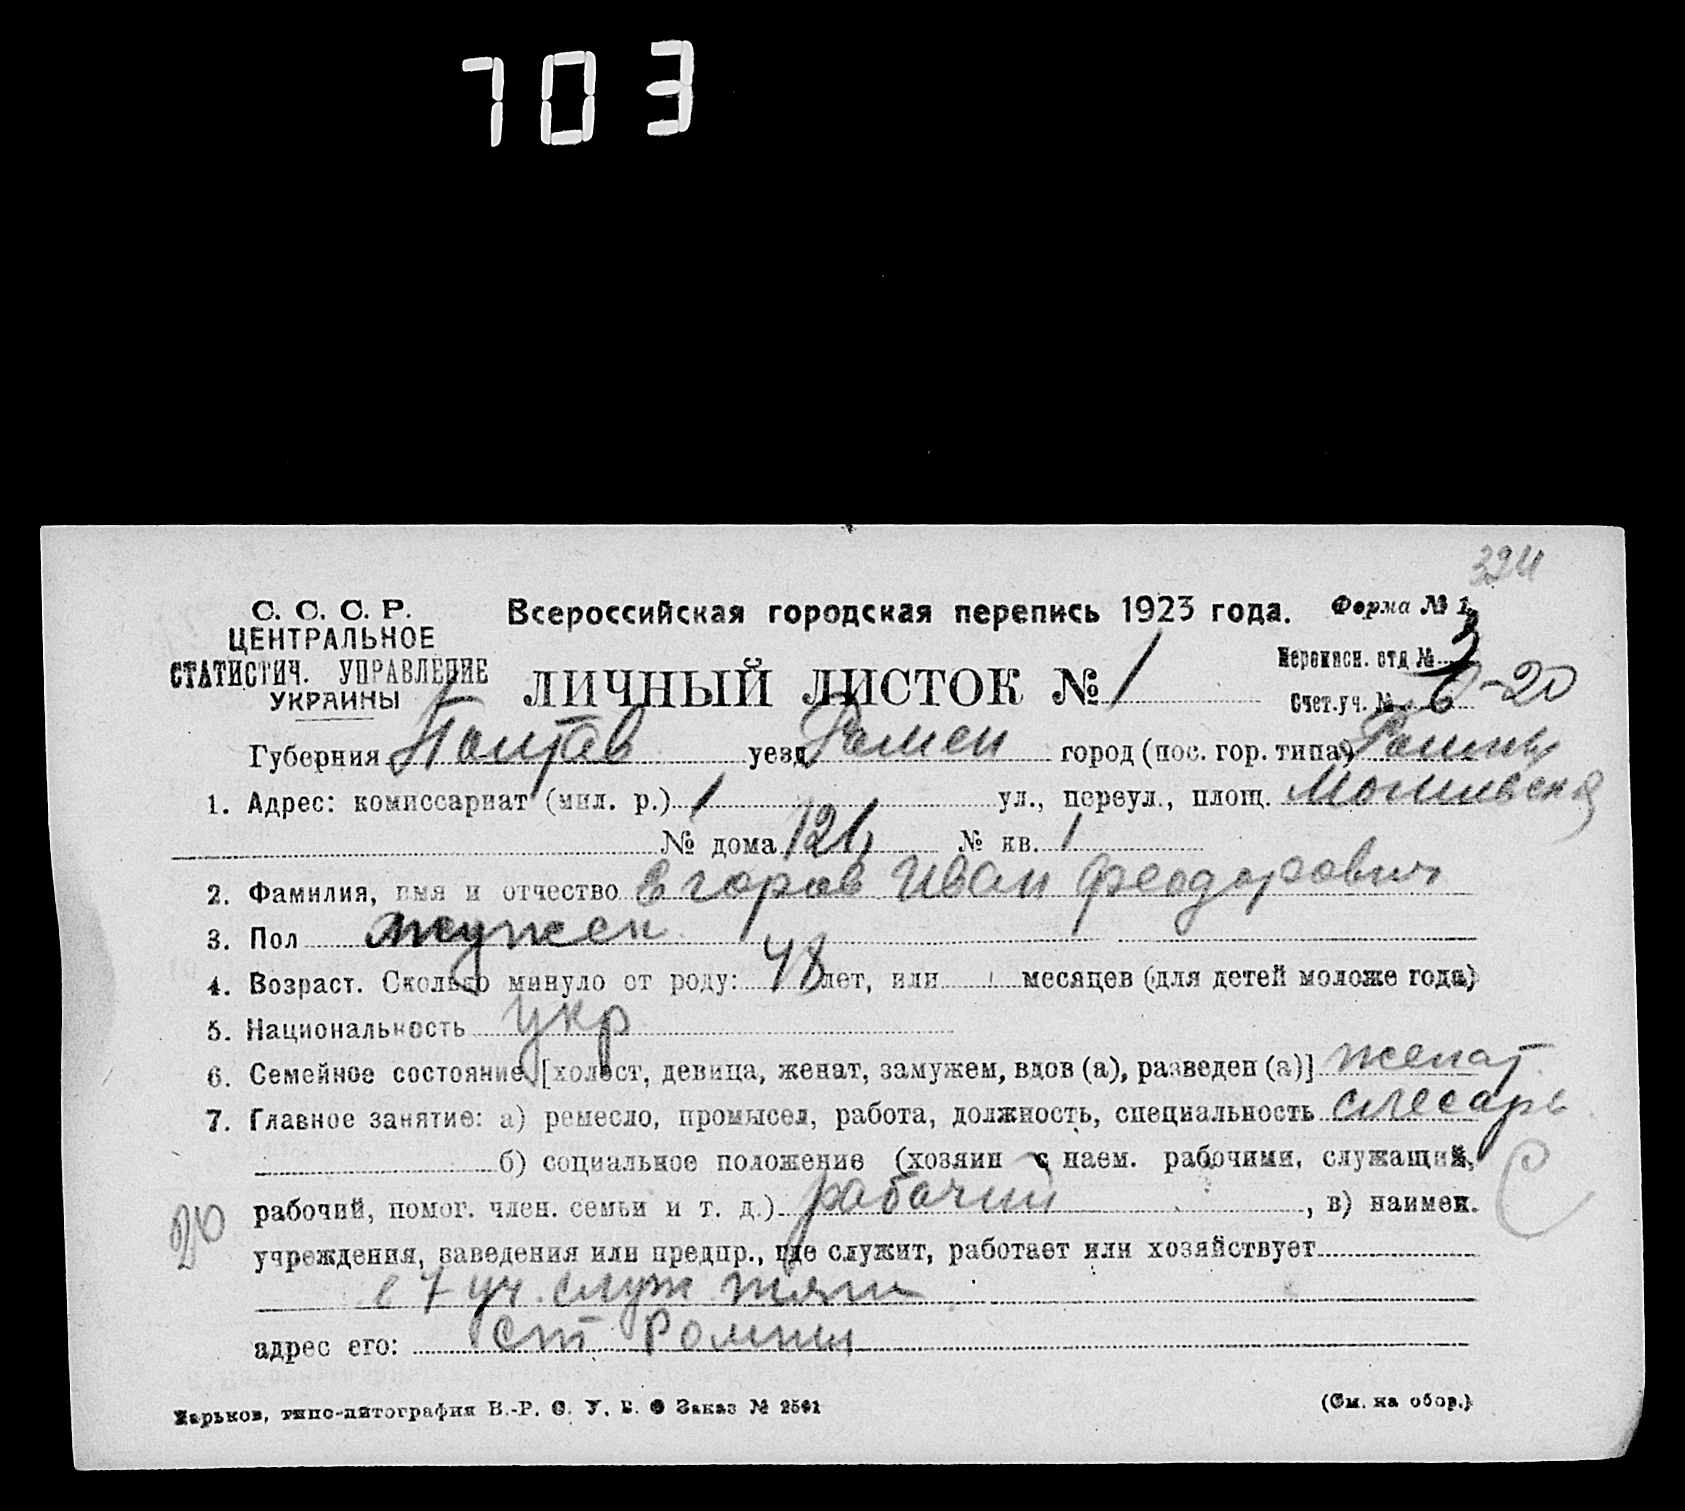 703
324
С. С. С. Р.
ЦЕНТРАЛЬНОЕ
СТАТИСТИЧ. УПРАВЛЕНИЕ
УКРАИНЫ
Всероссийская городская перепись 1923 года.
Форма № 1
ЛИЧНЫЙ ЛИСТОК № 1
Переписн. отд № 3
Счет.уч. № 6-20
Губерния Полтав уезд Ромен город (пос. гор. типа) Ромны
1. Адрес: комиссариат (мил. р.) 1 ул., переул., площ.
№ дома 121, № кв. 1
2. Фамилия, имя и отчество Егоров Иван Феодорович
3. Пол мужск
4. Возраст. Сколько минуло от роду: 48 лет, или месяцев (для детей моложе года)
5. Национальность укр
6. Семейное состояние [холост, девица, женат, замужем, вдов (а), разведен (а)] женат
7. Главное занятие: а) ремесло, промысел, работа, должность, специальность слесарь
б) социальное положение (хозяин с наем. рабочими, служащий,
рабочий, помог. член. семьи и т. д.) рабочий, в) наимен.
20
учреждения, заведения или предпр., где служит, работает или хозяйствует
7 уч. служ тяги
адрес его: ст Ромны
Харьков, типо-литография В.-Р. С. У. Заказ №
(См. на обор.)